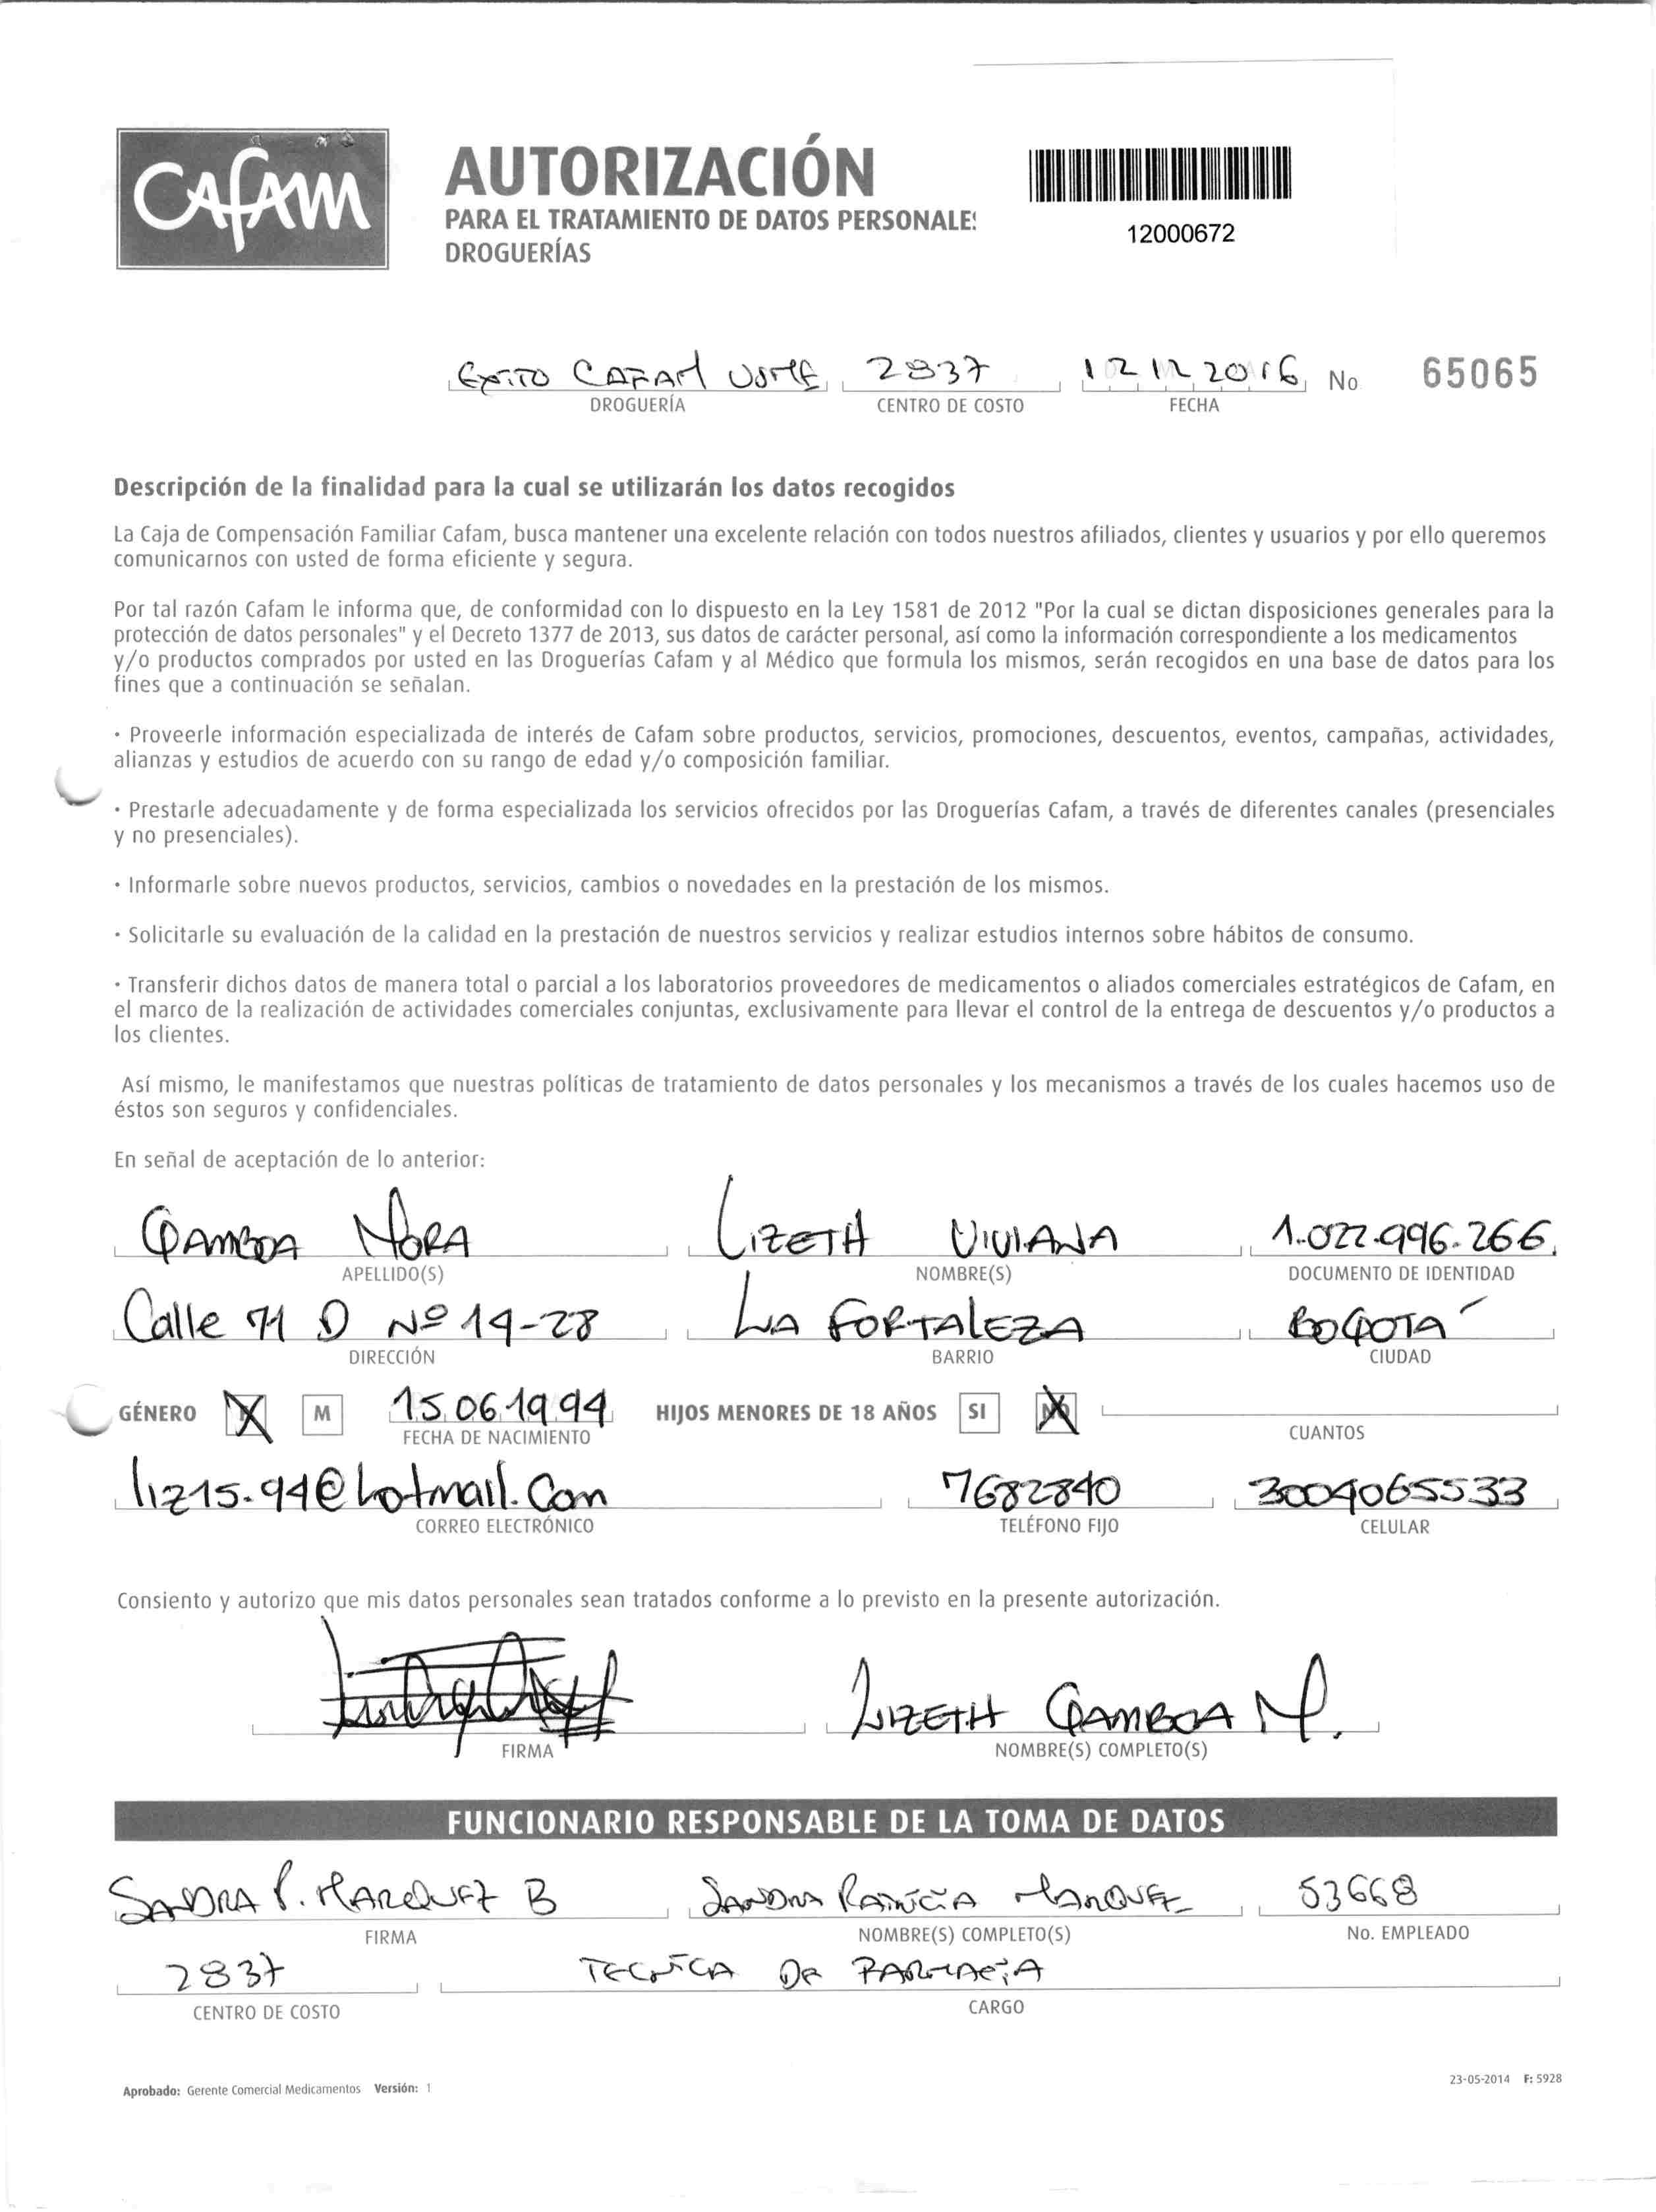 CAFAM
AUTORIZACIÓN
PARA EL TRATAMIENTO DE DATOS PERSONALE
DROGUERÍAS
12000672
EXITO CAFAM USME 2837 12 12 2016 No 65065
DROGUERÍA CENTRO DE COSTO FECHA
Descripción de la finalidad para la cual se utilizarán los datos recogidos
La Caja de Compensación Familiar Cafam, busca mantener una excelente relación con todos nuestros afiliados, clientes y usuarios y por ello queremos
comunicarnos con usted de forma eficiente y segura.
Por tal razón Cafam le informa que, de conformidad con lo dispuesto en la Ley 1581 de 2012 "Por la cual se dictan disposiciones generales para la
protección de datos personales" y el Decreto 1377 de 2013, sus datos de carácter personal, así como la información correspondiente a los medicamentos
y/o productos comprados por usted en las Droguerías Cafam y al Médico que formula los mismos, serán recogidos en una base de datos para los
fines que a continuación se señalan.
· Proveerle información especializada de interés de Cafam sobre productos, servicios, promociones, descuentos, eventos, campañas, actividades,
alianzas y estudios de acuerdo con su rango de edad y/o composición familiar.
· Prestarle adecuadamente y de forma especializada los servicios ofrecidos por las Droguerías Cafam, a través de diferentes canales (presenciales
y no presenciales).
· Informarle sobre nuevos productos, servicios, cambios o novedades en la prestación de los mismos.
· Solicitarle su evaluación de la calidad en la prestación de nuestros servicios y realizar estudios internos sobre hábitos de consumo.
· Transferir dichos datos de manera total o parcial a los laboratorios proveedores de medicamentos o aliados comerciales estratégicos de Cafam, en
el marco de la realización de actividades comerciales conjuntas, exclusivamente para llevar el control de la entrega de descuentos y/o productos a
los clientes.
Así mismo, le manifestamos que nuestras políticas de tratamiento de datos personales y los mecanismos a través de los cuales hacemos uso de
éstos son seguros y confidenciales.
En señal de aceptación de lo anterior:
GAMBOA MORA LIZETH VIVIANA 1.022.996.266.
APELLIDO(S) NOMBRE(S) DOCUMENTO DE IDENTIDAD
Calle 71 D Nº 14-28 LA FORTALEZA BOGOTÁ
DIRECCIÓN BARRIO CIUDAD
GÉNERO X M 15.06.1994 HIJOS MENORES DE 18 AÑOS SI X
FECHA DE NACIMIENTO CUANTOS
liz15.94@hotmail.com 7682840 3004065533
CORREO ELECTRÓNICO TELÉFONO FIJO CELULAR
Consiento y autorizo que mis datos personales sean tratados conforme a lo previsto en la presente autorización.
LIZETH GAMBOA M.
FIRMA NOMBRE(S) COMPLETO(S)
FUNCIONARIO RESPONSABLE DE LA TOMA DE DATOS
SANDRA P. MARQUEZ B SANDRA PATRICIA MARQUEZ 53668
FIRMA NOMBRE(S) COMPLETO(S) No. EMPLEADO
2837 TECNICA DE FARMACIA
CENTRO DE COSTO CARGO
Aprobado: Gerente Comercial Medicamentos Versión: 1 23-05-2014 F: 5928